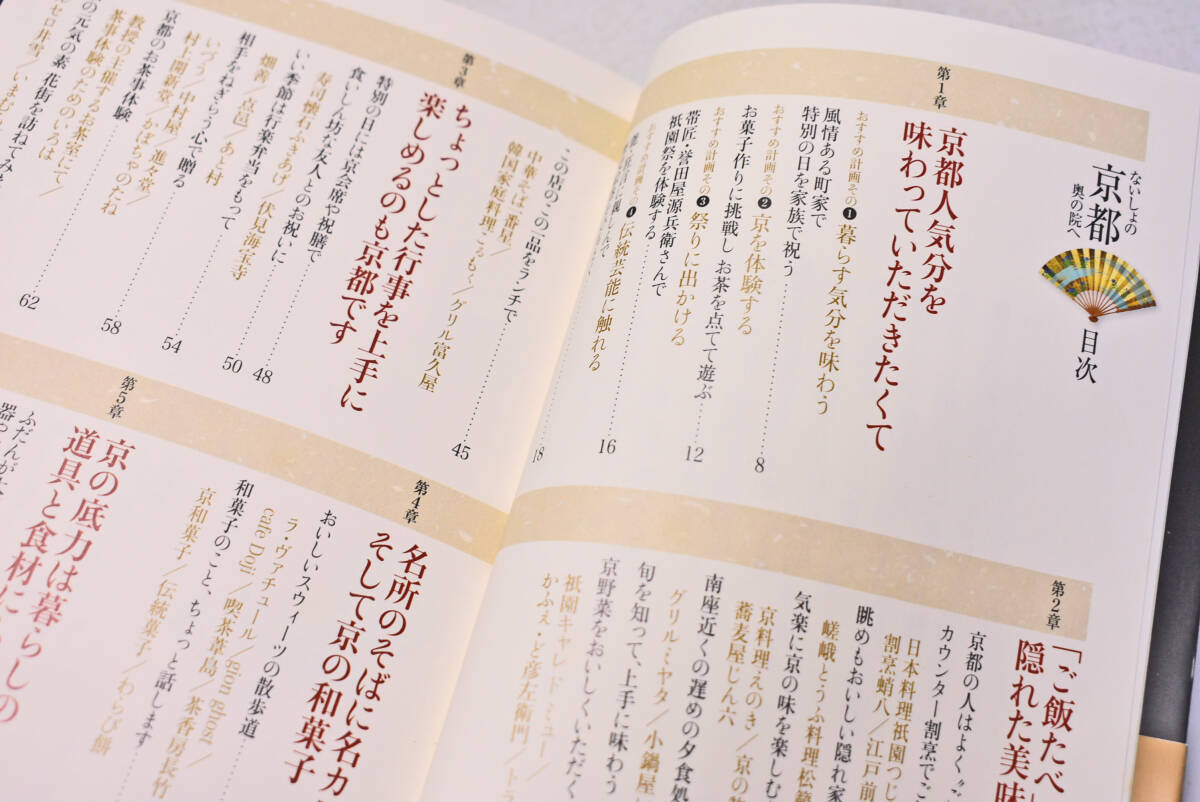 ないしょの
京都
奥の院へ
目次
第1章
京都人気分を
味わっていただきたくて
おすすめ計画その❶ 暮らす気分を味わう
風情ある町家で
特別の日を家族で祝う
おすすめ計画その❷ 京を体験する
お菓子作りに挑戦し お茶を点てて遊ぶ
8
おすすめ計画その❸ 祭りに出かける
帯匠・誉田屋源兵衛さんで
祇園祭を体験する
12
❹ 伝統芸能に触れる
16
18
第2章
「ご飯たべ」
隠れた美味
京都の人はよく
カウンター割烹でご
日本料理祇園つじ
割烹蛸八／江戸前
眺めもおいしい隠れ家
嵯峨とうふ料理松籟
気楽に京の味を楽しむ
京料理・えのき／京の
蕎麦屋じん六
南座近くの遅めの夕食処
グリル・ミヤタ／小鍋屋
旬を知って、上手に味わう
京野菜をおいしくいただく
祇園キャレ・ド・ミュー／
かふぇ・ど彦左衛門／トラ
この店の、この一品をランチで
中華そば一番星／
韓国家庭料理・ごるも〜／グリル富久屋
45
第3章
ちょっとした行事を上手に
楽しめるのも京都です
特別の日には京会席や祝膳で
食いしん坊な友人とのお祝いに
寿司懐石ふきあげ／伏見海宝寺
48
いい季節は行楽弁当をもって
畑善／点邑／あと村
50
相手をねぎらう心で贈る
いづう／中村屋／進々堂／
村上開新堂／ろばちゃのたね
54
京都のお茶事体験
教授の主催するお茶室にて／
茶事体験のためのいろは
58
の元気の素 花街を訪ねてみま
セロ井雪／いまむら
62
第4章
名所のそばに名カ
そして京の和菓子
おいしいスウィーツの散歩道
ラ・ヴァチュール／gion ghost／
cafe Doji／喫茶葦島／茶香房長竹
和菓子のこと、ちょっと話します
京和菓子／伝統菓子／わらび餅
第5章
京の底力は暮らしの
道具と食材に
ふだんが
器や